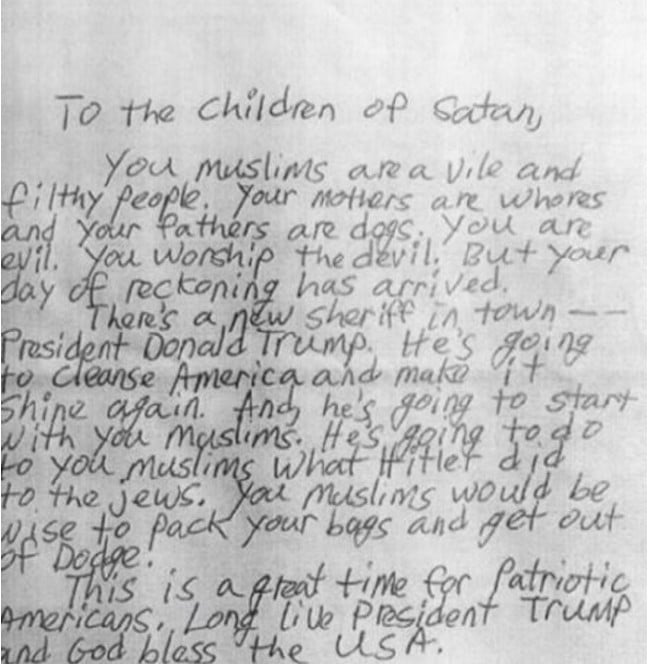 To the Children of Satan,
You muslims are a vile and
filthy people. Your mothers are whores
and your fathers are dogs. You are
evil. You worship the devil. But your
day of reckoning has arrived.
There's a new sheriff in town --
President Donald Trump. He's going
to cleanse America and make it
shine again. And, he's going to start
with you muslims. He's going to do
to you muslims what Hitler did
to the jews. You muslims would be
wise to pack your bags and get out
of Dodge.
This is a great time for Patriotic
Americans. Long live President Trump
and God bless the USA.